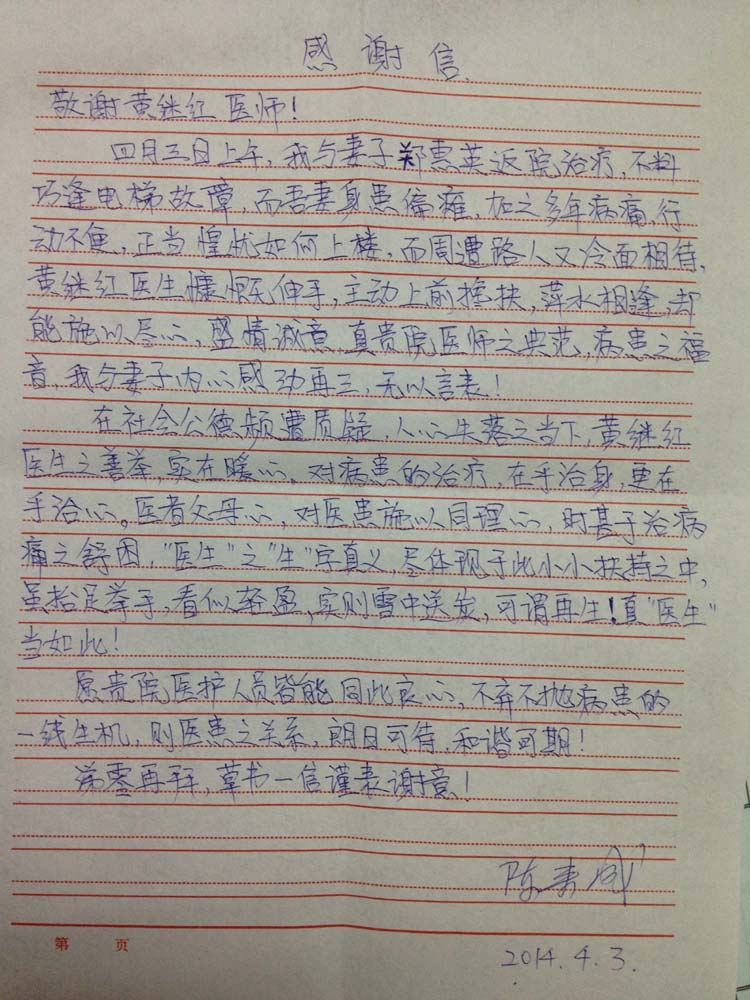 感谢信
敬谢黄继红医师！
四月三日上午，我与妻子郑惠英返院治疗，不料
巧逢电梯故障，而吾妻身患偏瘫，加之多年病痛，行
动不便，正当惶忧如何上楼，而周遭路人又冷面相待，
黄继红医生慷慨伸手，主动上前搀扶，萍水相逢，却
能施以尽心，盛情诚意，真贵院医师之典范，病患之福
音，我与妻子内心感动再三，无以言表！
在社会公德频遭质疑，人心失落之当下，黄继红
医生之善举，实在暖心。对病患的治疗，在乎治身，更在
乎治心。医者父母心，对医患施以同理心，时甚于治病
痛之舒困，"医生"之"生"字真义，尽体现于此小小扶持之中，
虽抬足举手，看似轻盈，实则雪中送炭，可谓再生！真"医生"
当如此！
愿贵院医护人员皆能同此良心，不弃不抛病患的
一线生机，则医患之关系，朗日可待，和谐可期！
涕零再拜，草书一信谨表谢意！
陈
2014.4.3.
第 页